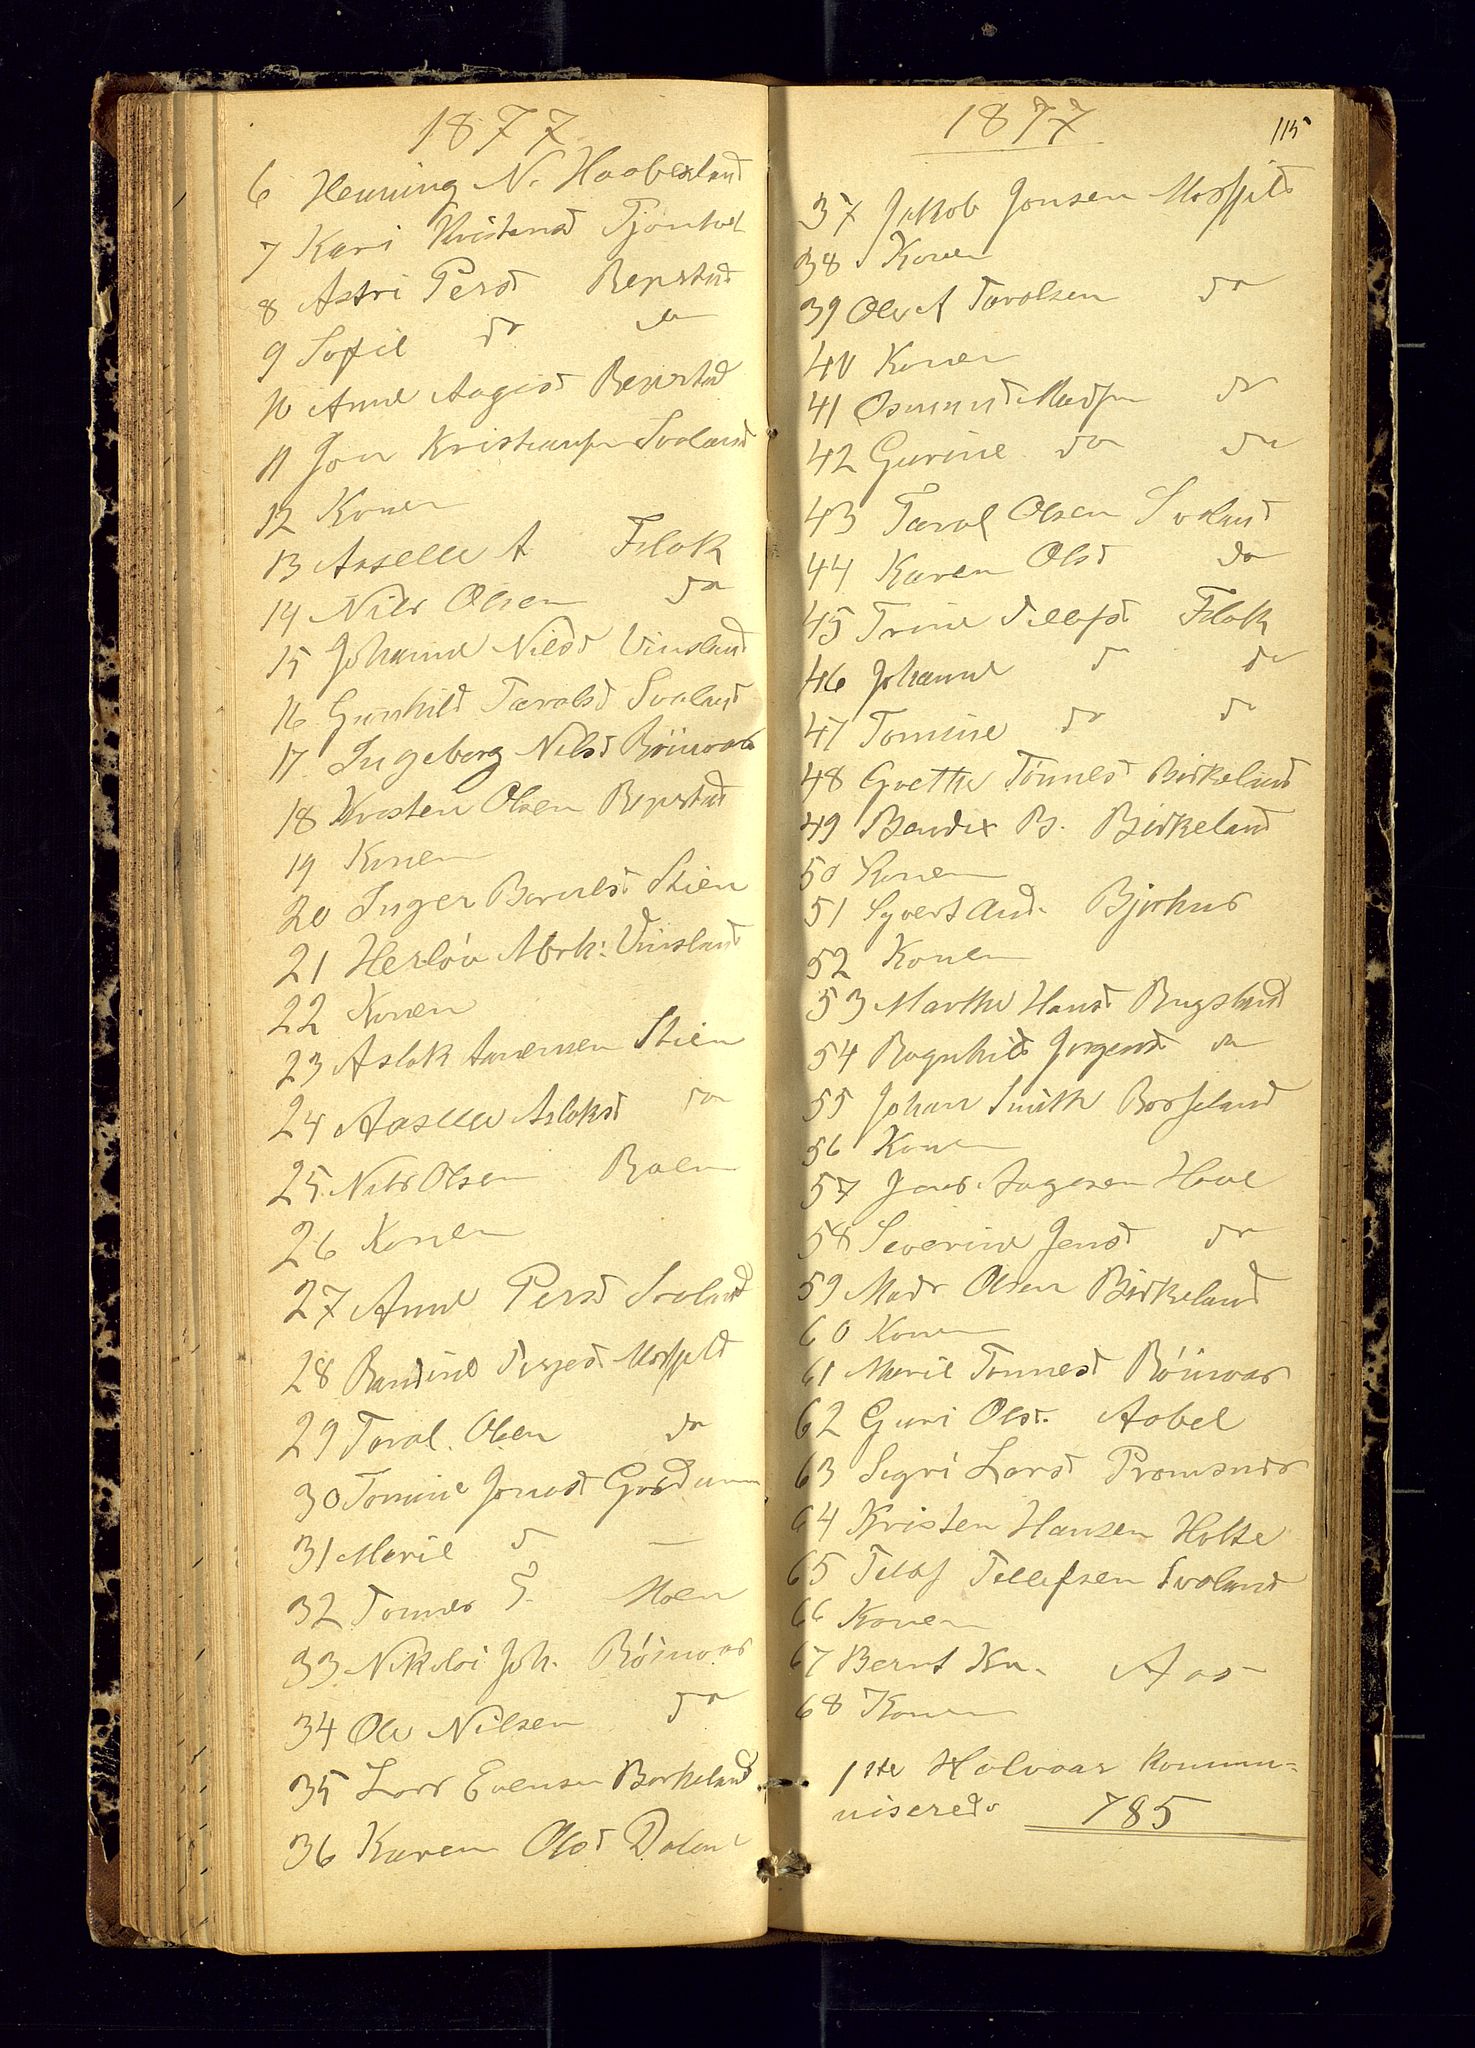 1877
6 Henning N. Haabesland
7 Kari Kristensd Tjomhol
8 Astri Persd Repstad
9 Sofie do do
10 Anne Aagesd Repstad
11 Jon Kristiansen Svaland
12 Konen
13 Aaselle A Flak
14 Nils Olsen do
15 Johanne Nilsd Vinsland
16 Gunhild Taralsd Svaland
17 Ingeborg Nilsd Röinaas
18 Kristen Olsen Repstad
19 Konen
20 Inger Barnlsd Stien
21 Herlöv Abrh: Vinsland
22 Konen
23 Aslak Aanensen Stien
24 Aaselle Aslaksd do
25 Nils Olsen Roen
26 Konen
27 Anne Persd Svaland
28 Randine Terjesd Mosfjeld
29 Taral Olsen do
30 Tomine Jonasd
31 Marie d —
32 Tønnes T. Moen
33 Nikolai Joh. Röinaas
34 Ole Nilsen do
35 Lars Evensen Birkeland
36 Karen Olsd Dolan
1877
115
37 Jakob Jonsen Mosfjeld
38 Konen
39 Ole A Taralsen do
40 Konen
41 Osmund Madsen do
42 Gurine do do
43 Taral Olsen Svaland
44 Karen Olsd do
45 Trine Tellefsd Flak
46 Johanne d do
47 Tomine do do
48 Grethe Tönnesd Birkeland
49 Bendix B. Birkeland
50 Konen
51 Syvert And. Bjorhus
52 Konen
53 Marthe Hansd Rugsland
54 Ragnhild Jörgensd do
55 Johan Smith Bosseland
56 Konen
57 Jens Aagesen Hove
58 Severine Jensd do
59 Mads Olsen Birkeland
60 Konen
61 Marie Tonnesd Röinaas
62 Guri Olsd. Aabel
63 Segri Larsd Promsnes
64 Kristen Hansen Holte
65 Tellef Tellefsen Svaland
66 Konen
67 Bernt Kn. Aas
68 Konen
1ste Halvaar Kommu-
niserede 785